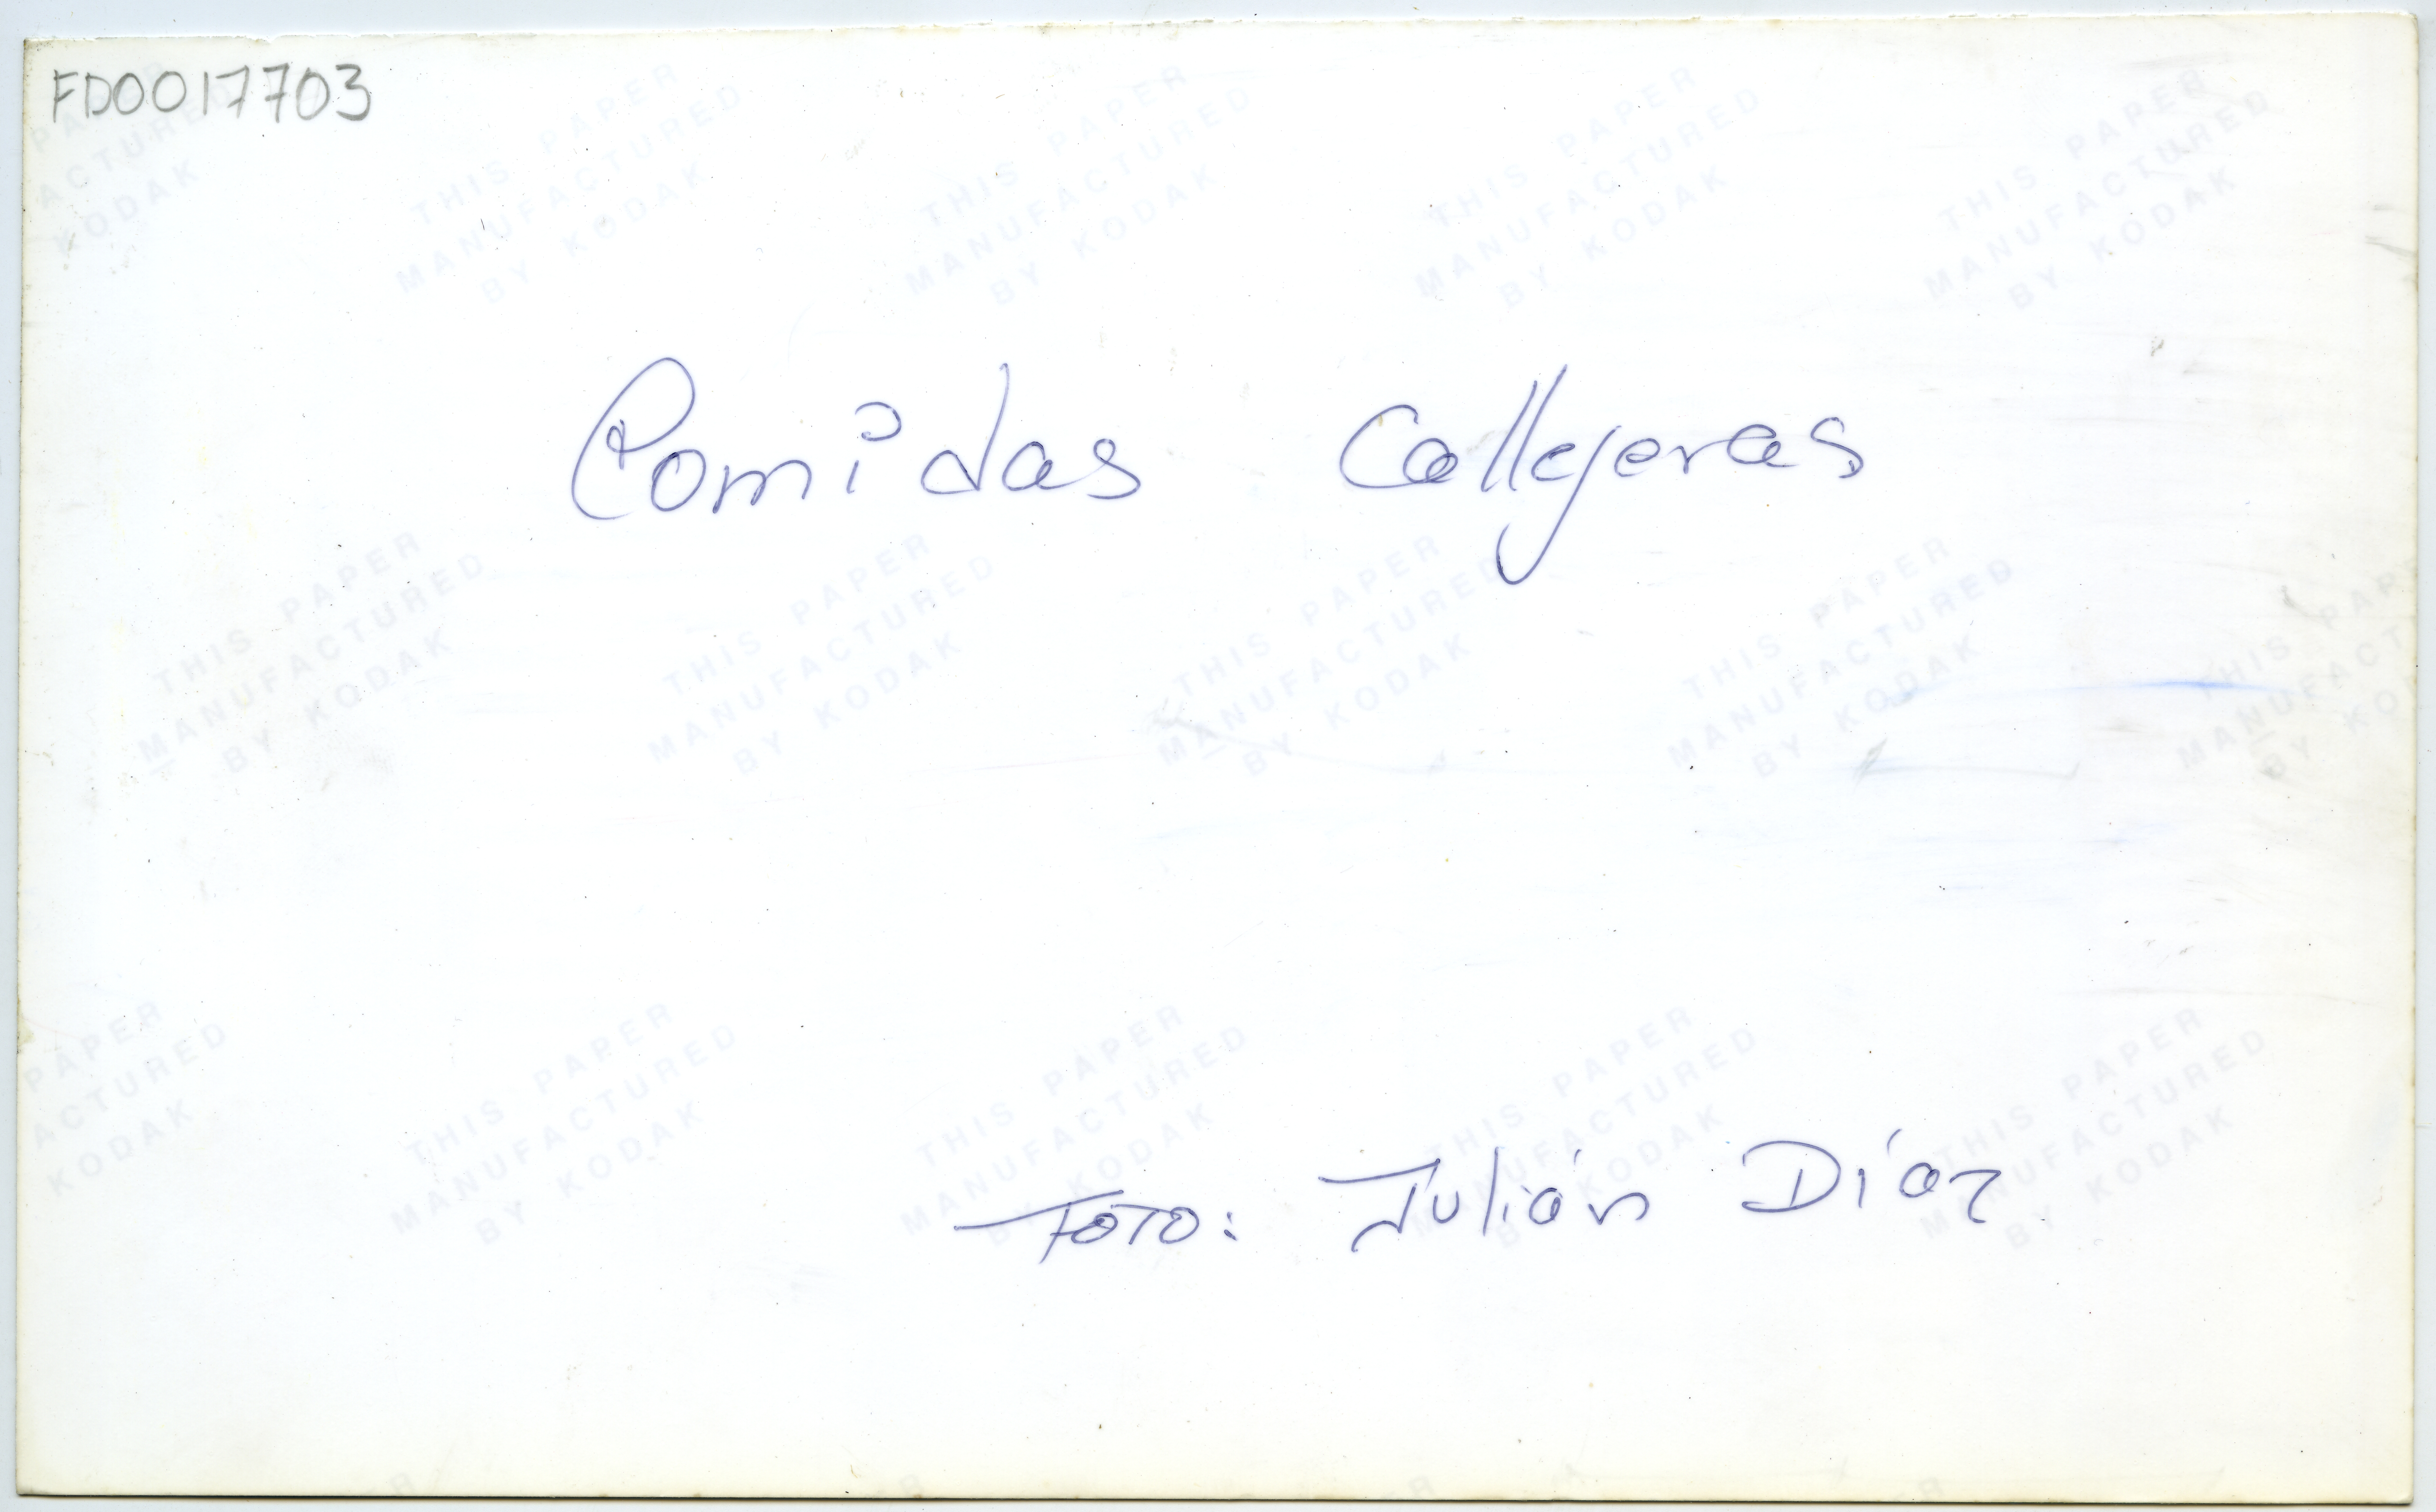 FD0017703
THIS PAPER
MANUFACTURED
BY KODAK
Comidas Callejeras
FOTO: Julián Díaz